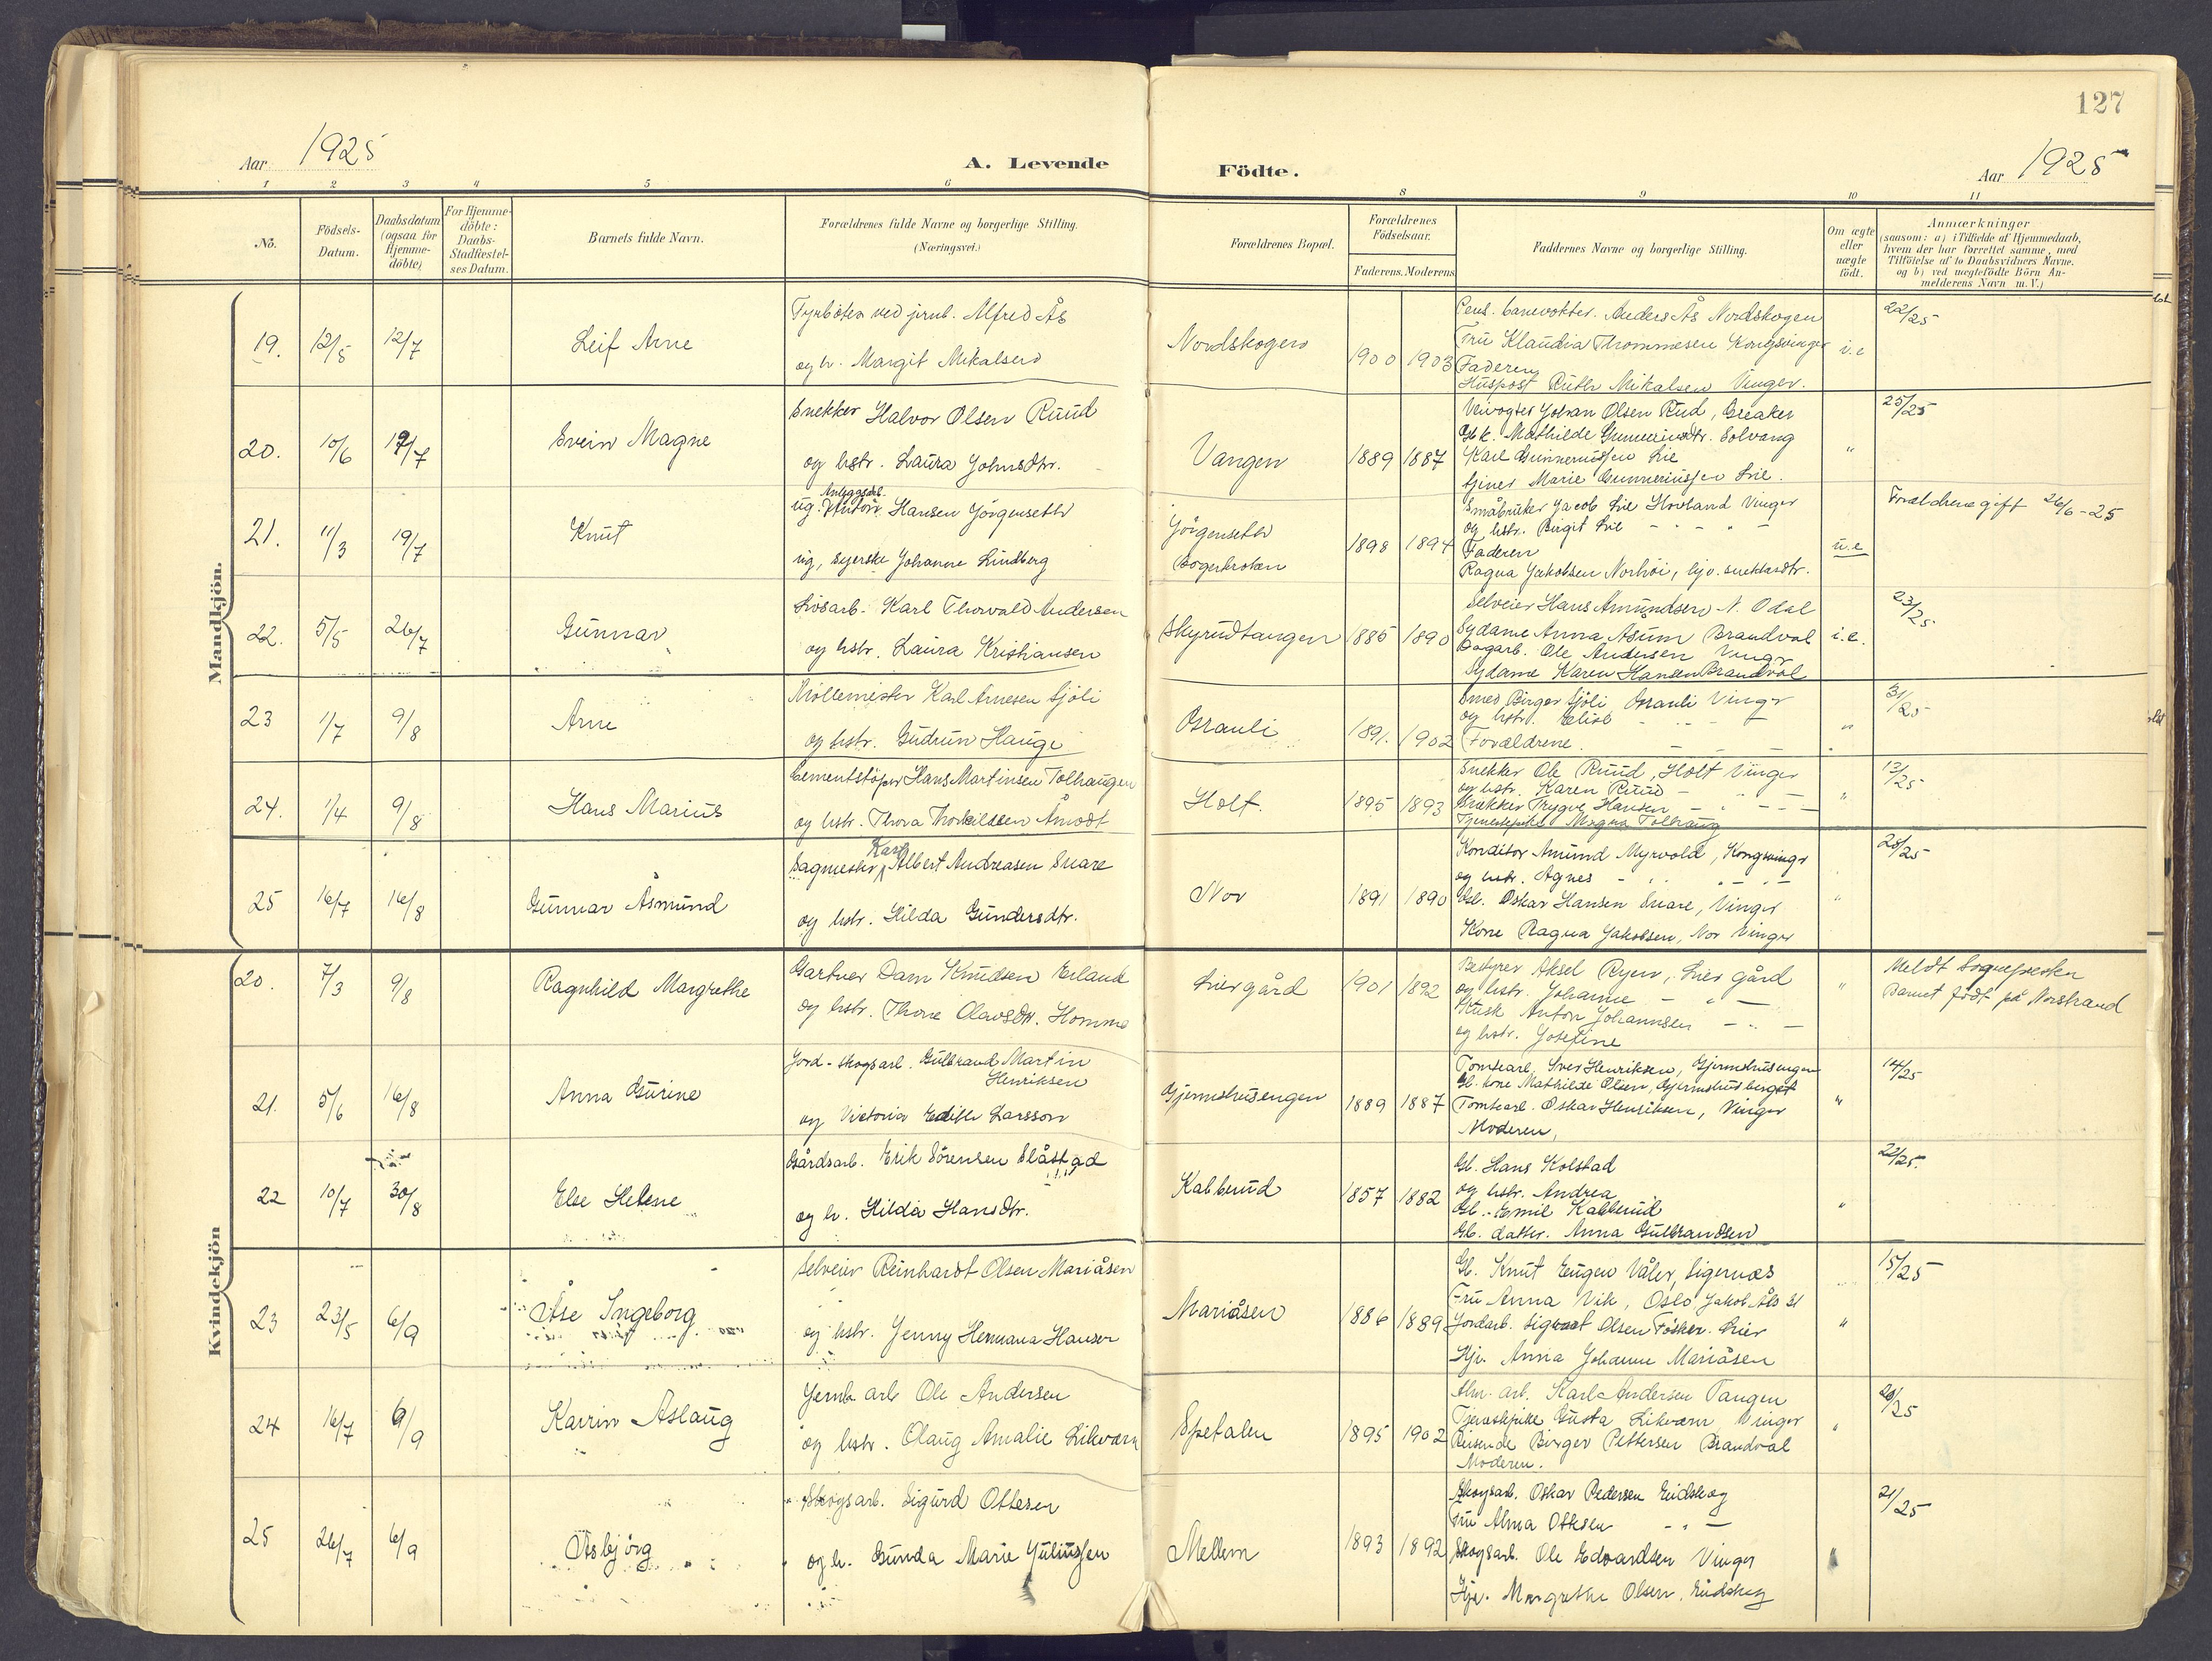 127
Aar 1925
A. Levende Födte.
Aar 1925
1 2 3 4 5 6 8 9 10 11
No.
Födsels-Datum.
Daabsdatum (ogsaa for Hjemme-döbte)
For Hjemme-döbte: Daabs-Stadfæstel-ses Datum.
Barnets fulde Navn.
Forældrenes fulde Navne og borgerlige Stilling. (Næringsvei.)
Forældrenes Bopæl.
Forældrenes Födselsaar.
Faderens. Moderens
Faddernes Navne og borgerlige Stilling.
Om ægte eller uægte födt.
Anmærkninger (saasom: a) i Tilfælde af Hjemmedaab, hvem der har forrettet samme, med Tilföielse af to Daabsvidners Navne. og b) ved uægtefödte Börn An-melderens Navn m. V.)
Mandkjön.
19. 12/5 12/7 Leif Arne
Fyrböter ved jernb. Alfred Ås
og h. Margit Mikalsen
Nordskogen 1900 1903
Pens. banevokter. Anders Ås Nordskogen
Fru Klaudia Thommesen Kongsvinger
Faderen
Huspost Ruth Mikalsen Vinger.
i.e
22/25
20. 10/6 19/7 Svein Magne
Snekker Halvor Olsen Ruud
og hstr. Laura Johnsdtr.
Vangen 1889 1887
Johan Olsen Rud, Greaker
Gbk. Mathilde Gunneriusdtr. Solvang
Karl Gunneriussen Lie
Marie Gunneriussen Lie.
"
25/25
21. 11/3 19/7 Knut
ug. Anleggsarb. Hansen Jörgenseth
ug, syerske Johanne Lindberg
Jörgenseth 1898 1894
Småbruker Jacob Lie Hovland Vinger
og hstr. Birgit Lie - - " -
Faderen
Ragna Jakobsen Norhöi, hjv. snekkerdtr.
u.e
Forældrene gift 26/6-25
22. 5/5 26/7 Gunnar
Lösarb. Karl Thorvald Andersen
og hstr. Laura Kristiansen
Skyrudtangen 1885 1890
Selveier Hans Amundsen N. Odal
Sydame Anna Åsum Brandval
Dagarb. Ole Andersen Vinger
Sydame Karen Hansen Brandvol
i.e.
23/25
23 1/7 9/8 Arne
Möllemester Karl Arnesen Sjöli
og hstr. Gudrun Hauge
Brauli 1891. 1902
Smed Birger Sjöli Brauli Vinger
og hstr. Elise
Forældrene.
"
31/25
24. 1/4 9/8 Hans Marius
Cementstöper Hans Martinsen Tolhaugen
og hstr. Thora Thorkildsen Åmodt
Holt. 1895 1893
Snekker Ole Ruud, Holt Vinger
og hstr. Karen Ruud
Snekker Trygve Hansen
Tjenestepike Magna Tolhaug
"
13/25
25 16/7 16/8 Gunnar Åsmund
Sagmester Karl Albert Andreasen Snare
og hstr. Hilda Gundersdtr.
Nor 1891 1890
Konditor Amund Myrvold, Kongsvinger
og hstr. Agnes
Gb. Oskar Hansen Snare, Vinger
Kone Ragna Jakobsen, Nor Vinger
"
28/25
Kvindekjön
20. 7/3 9/8 Ragnhild Margrethe
Gartner Dam Knudsen Erland
og hstr. Thone Olavsdtr. Homme
Liergård 1901 1892
Bestyrer Aksel Ryen, Lier gård
og hstr. Johanne - " -
Husk Anton Johannsen - " -
og hstr. Josefine
"
Meldt Sognepresten
Barnet født på Norstrand
21. 5/6 16/8 Anna Gurine
Jord-skogsarb. Gulbrand Martin Henriksen
og Victoria Edith Larsson
Gjermshusengen 1889 1887
Tomtearb. Iver Henriksen, Gjermshusengen
Gb. kone Mathilde Olsen, Gjermshusberget
Tomtearb. Oskar Henriksen, Vinger
Moderen,
"
14/25
22 10/7 30/8 Else Helene
Gårdsarb. Erik Sörensen Slåstad
og h. Hilda Hansdtr.
Kabberud 1857 1882
Gb. Hans Kolstad
og hstr. Andrea
Gb. Emil Kabberud
Gb. datter. Anna Gulbrandsen
"
22/25.
23 23/5 6/9 Åse Ingeborg
Selveier Reinhardt Olsen Mariåsen
og hstr. Jenny Hermana Hansen
Mariåsen 1886 1889
Gb. Knut Eugen Våler, Sigernæs
Fru Anna Vik, Oslo Jakob Åls gt
Jordarb. Olsen Fosker. Lier
Hjv. Anna Johanne Mariåsen
"
15/25
24 16/7 6/9 Karin Aslaug
Jernb arb Ole Andersen
og hstr. Olaug Amalie Likværn
Spetalen 1895 1902
Alm. arb. Karl Andersen Tangen
Tjenestepike Gusta Likværn Vinger
Reisende Birger Pettersen Brandval
Moderen.
"
20/25
25 26/7 6/9 Åsbjörg
Skogsarb. Sigurd Ottesen
og h. Gunda Marie Juliussen
Mellem 1893 1892
Skogsarb. Oskar Pedersen Eidskog
Fru Alma Ottesen - " -
Skogsarb. Ole Edvardsen Vinger
Hjv. Margrethe Olsen, Eidskog
"
21/25